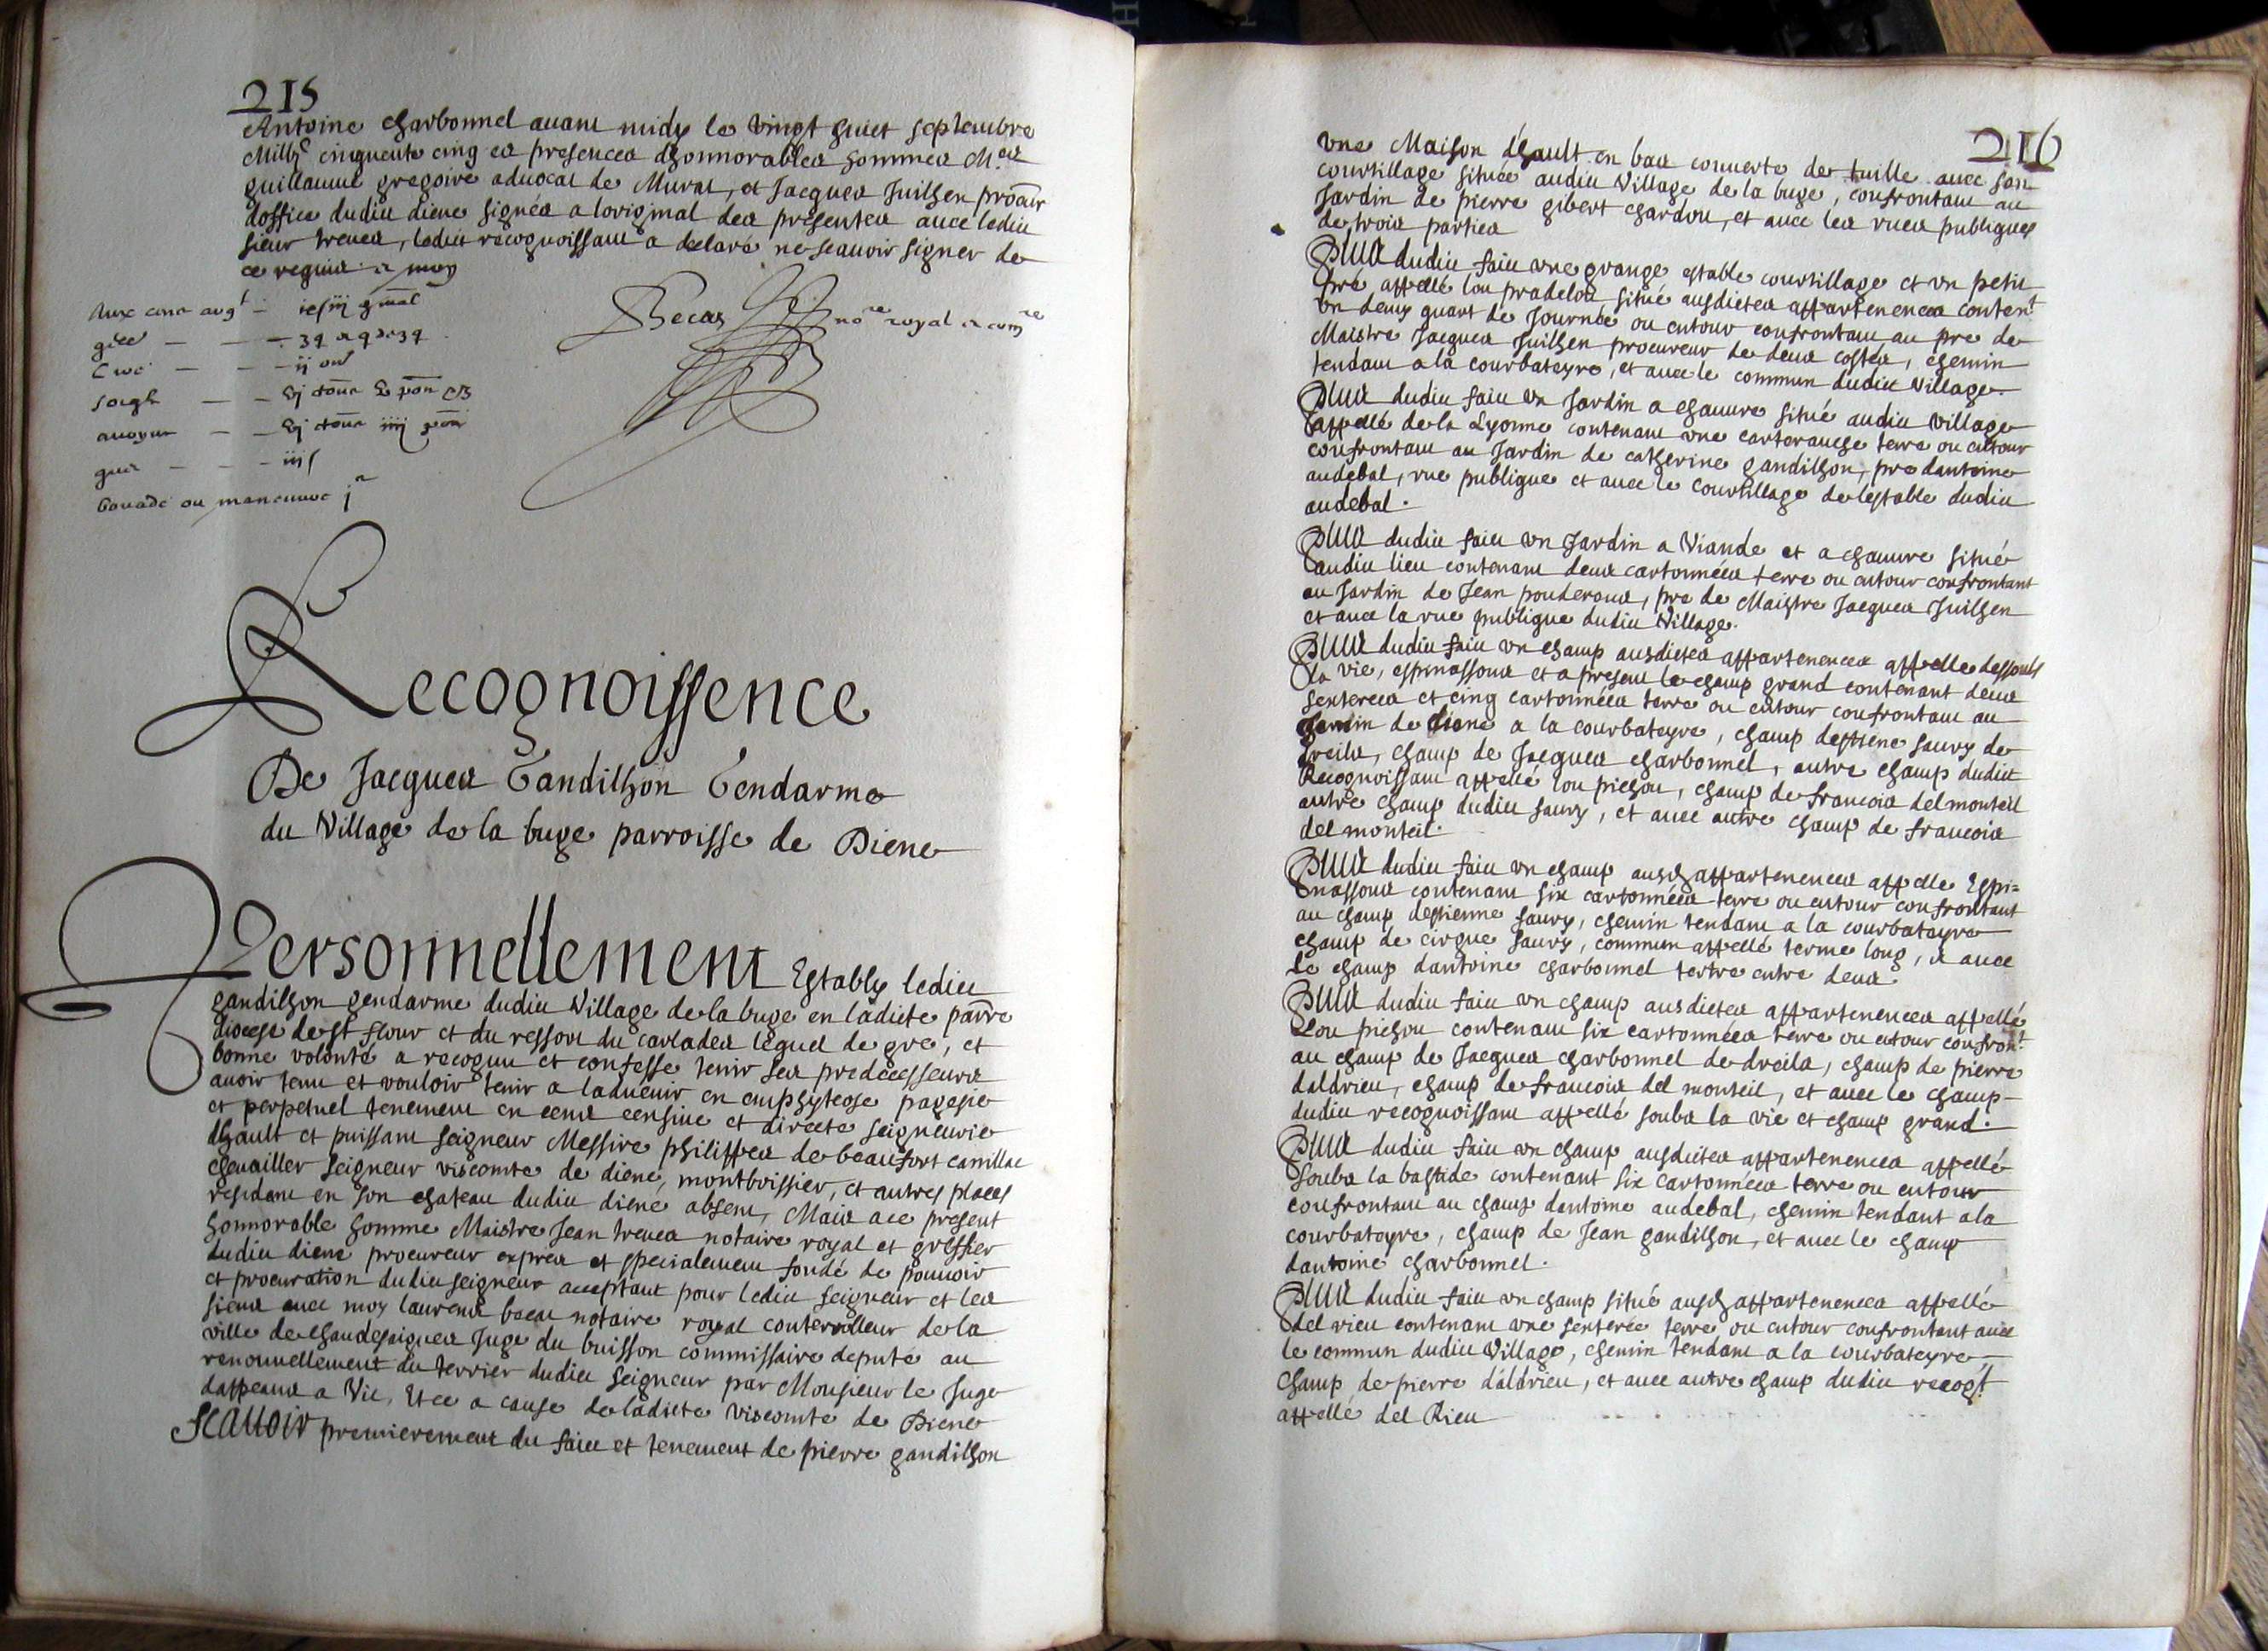 215
Antoine charbonnel auant midy le vingt huict septembre
Mil six cinquente cinq es presences dhonnorables hommes Mes
guillaume gregoire aduocat de Murat, et Jacques Juilhen
doffice dudict diene signés a loriginal des presentes auec ledict
sieur treues, ledict recognoissant a declaré ne scauoir signer de
ce requis et moy
Aux cens argt -
Becas nore royal et comre
soigle - -
auoyne - -
gex - - - iiij s
bouade ou maneuure j
Recognoissence
De Jacques Gandilhon Gendarme
du Village de la buge parroisse de Diene
Personnellement Estably ledict
gandilhon gendarme dudict Village de la buge en ladicte parre
diocese de st flour et du ressort du carlades lequel de gre, et
bonne volonté a recognu et confesse tenir ses predecesseurs
auoir tenu et vouloir tenir a laduenir en emphyteose pagesie
et perpetuel tenement en cens censiue et directe seigneurie
dhault et puissant seigneur Messire philippes de beaufort canillac
cheuailler seigneur viscomte de diene, montboissier, et autres places
residant en son chateau dudict diene absent, Mais ace present
honnorable homme Maistre Jean treues notaire royal et greffier
dudict diene procureur expres et specialement fondé de pouuoir
et procuration dudict seigneur acceptant pour ledict seigneur et les
siens auec moy laurens becas notaire royal conterolleur de la
ville de chaudesaigues Juge du buisson commissaire deputé au
renouuellement du terrier dudict seigneur par Monsieur le Juge
dappeaux a Vic, Et ce a cause de ladicte viscomte de Diene
Scauoir premierement du faict et tenement de pierre gandilhon
216
vne Maison dhault en bas couuerte de tuille auec son
courtillage située audict Village de la buge, confrontant au
Jardin de pierre gibert chardon, et auec les rues publiques
de trois parties
Plus dudict faict vne grange estable courtillage et vn petit
pré appellé lou pradelou situé ausdictes appartenences content
vn deux quart de Journée ou entour confrontant au pre de
Maistre Jacques Juilhen procureur de deux costes, chemin
tendant a la courbateyre, et auec le commun dudict Village
Plus dudict faict vn Jardin a chanure situé audict village
appellé de la Lyonne contenant vne carteranche terre ou entour
confrontant au Jardin de catherine gandilhon, pre dantoine
audebal, rue publique et auec le courtillage de lestable dudict
audebal.
Plus dudict faict vn Jardin a Viande et a chanure situé
audict lieu contenant deux cartonnées terre ou entour confrontant
au Jardin de Jean pouderoux, pre de Maistre Jacques Juilhen
et auec la rue publique dudict Village.
Plus dudict faict vn champ ausdictes appartenences appelle dessoubs
la vie, espinassoux et a present le champ grand contenant deux
sesterees et cinq cartonnées terre ou entour confrontant au
chemin de diene a la courbateyre, champ destiene saury de
dreils, champ de Jacques charbonnel, autre champ dudict
Recognoissant appellé lou pichou, champ de francois delmonteil
autre champ dudict saury, et auec autre champ de francois
delmonteil.
Plus dudict faict vn champ ausd appartenences appelle Espi=
nassoux contenant six cartonnées terre ou entour confrontant
au champ destienne saury, chemin tendant a la courbateyre
champ de cirgue saury, commun appellé terme long, et auec
le champ dantoine charbonnel tertre entre deux
Plus dudict faict vn champ ausdictes appartenences appellé
Lou pichou contenant six cartonnées terre ou entour confront
au champ de Jacques charbonnel de dreils, champ de pierre
daldrieu, champ de francois del monteil, et auec le champ
dudict recognoissant appellé soubs la vie et champ grand.
Plus dudict faict vn champ ausdictes appartenences appellé
soubs la bastide contenant six cartonnées terre ou entour
confrontant au champ dantoine audebal, chemin tendant ala
courbateyre, champ de Jean gandilhon, et auec le champ
dantoine charbonnel.
Plus dudict faict vn champ situé ausd appartenences appellé
del rieu contenant vne sesterée terre ou entour confrontant auec
le commun dudict Village, chemin tendant a la courbateyre
champ de pierre daldrieu, et auec autre champ dudict recogt
appellé del Rieu